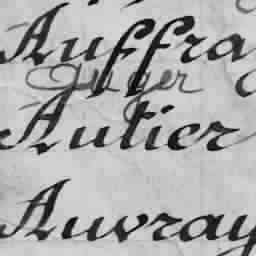 Auffray
Auger
Autier
Auvray